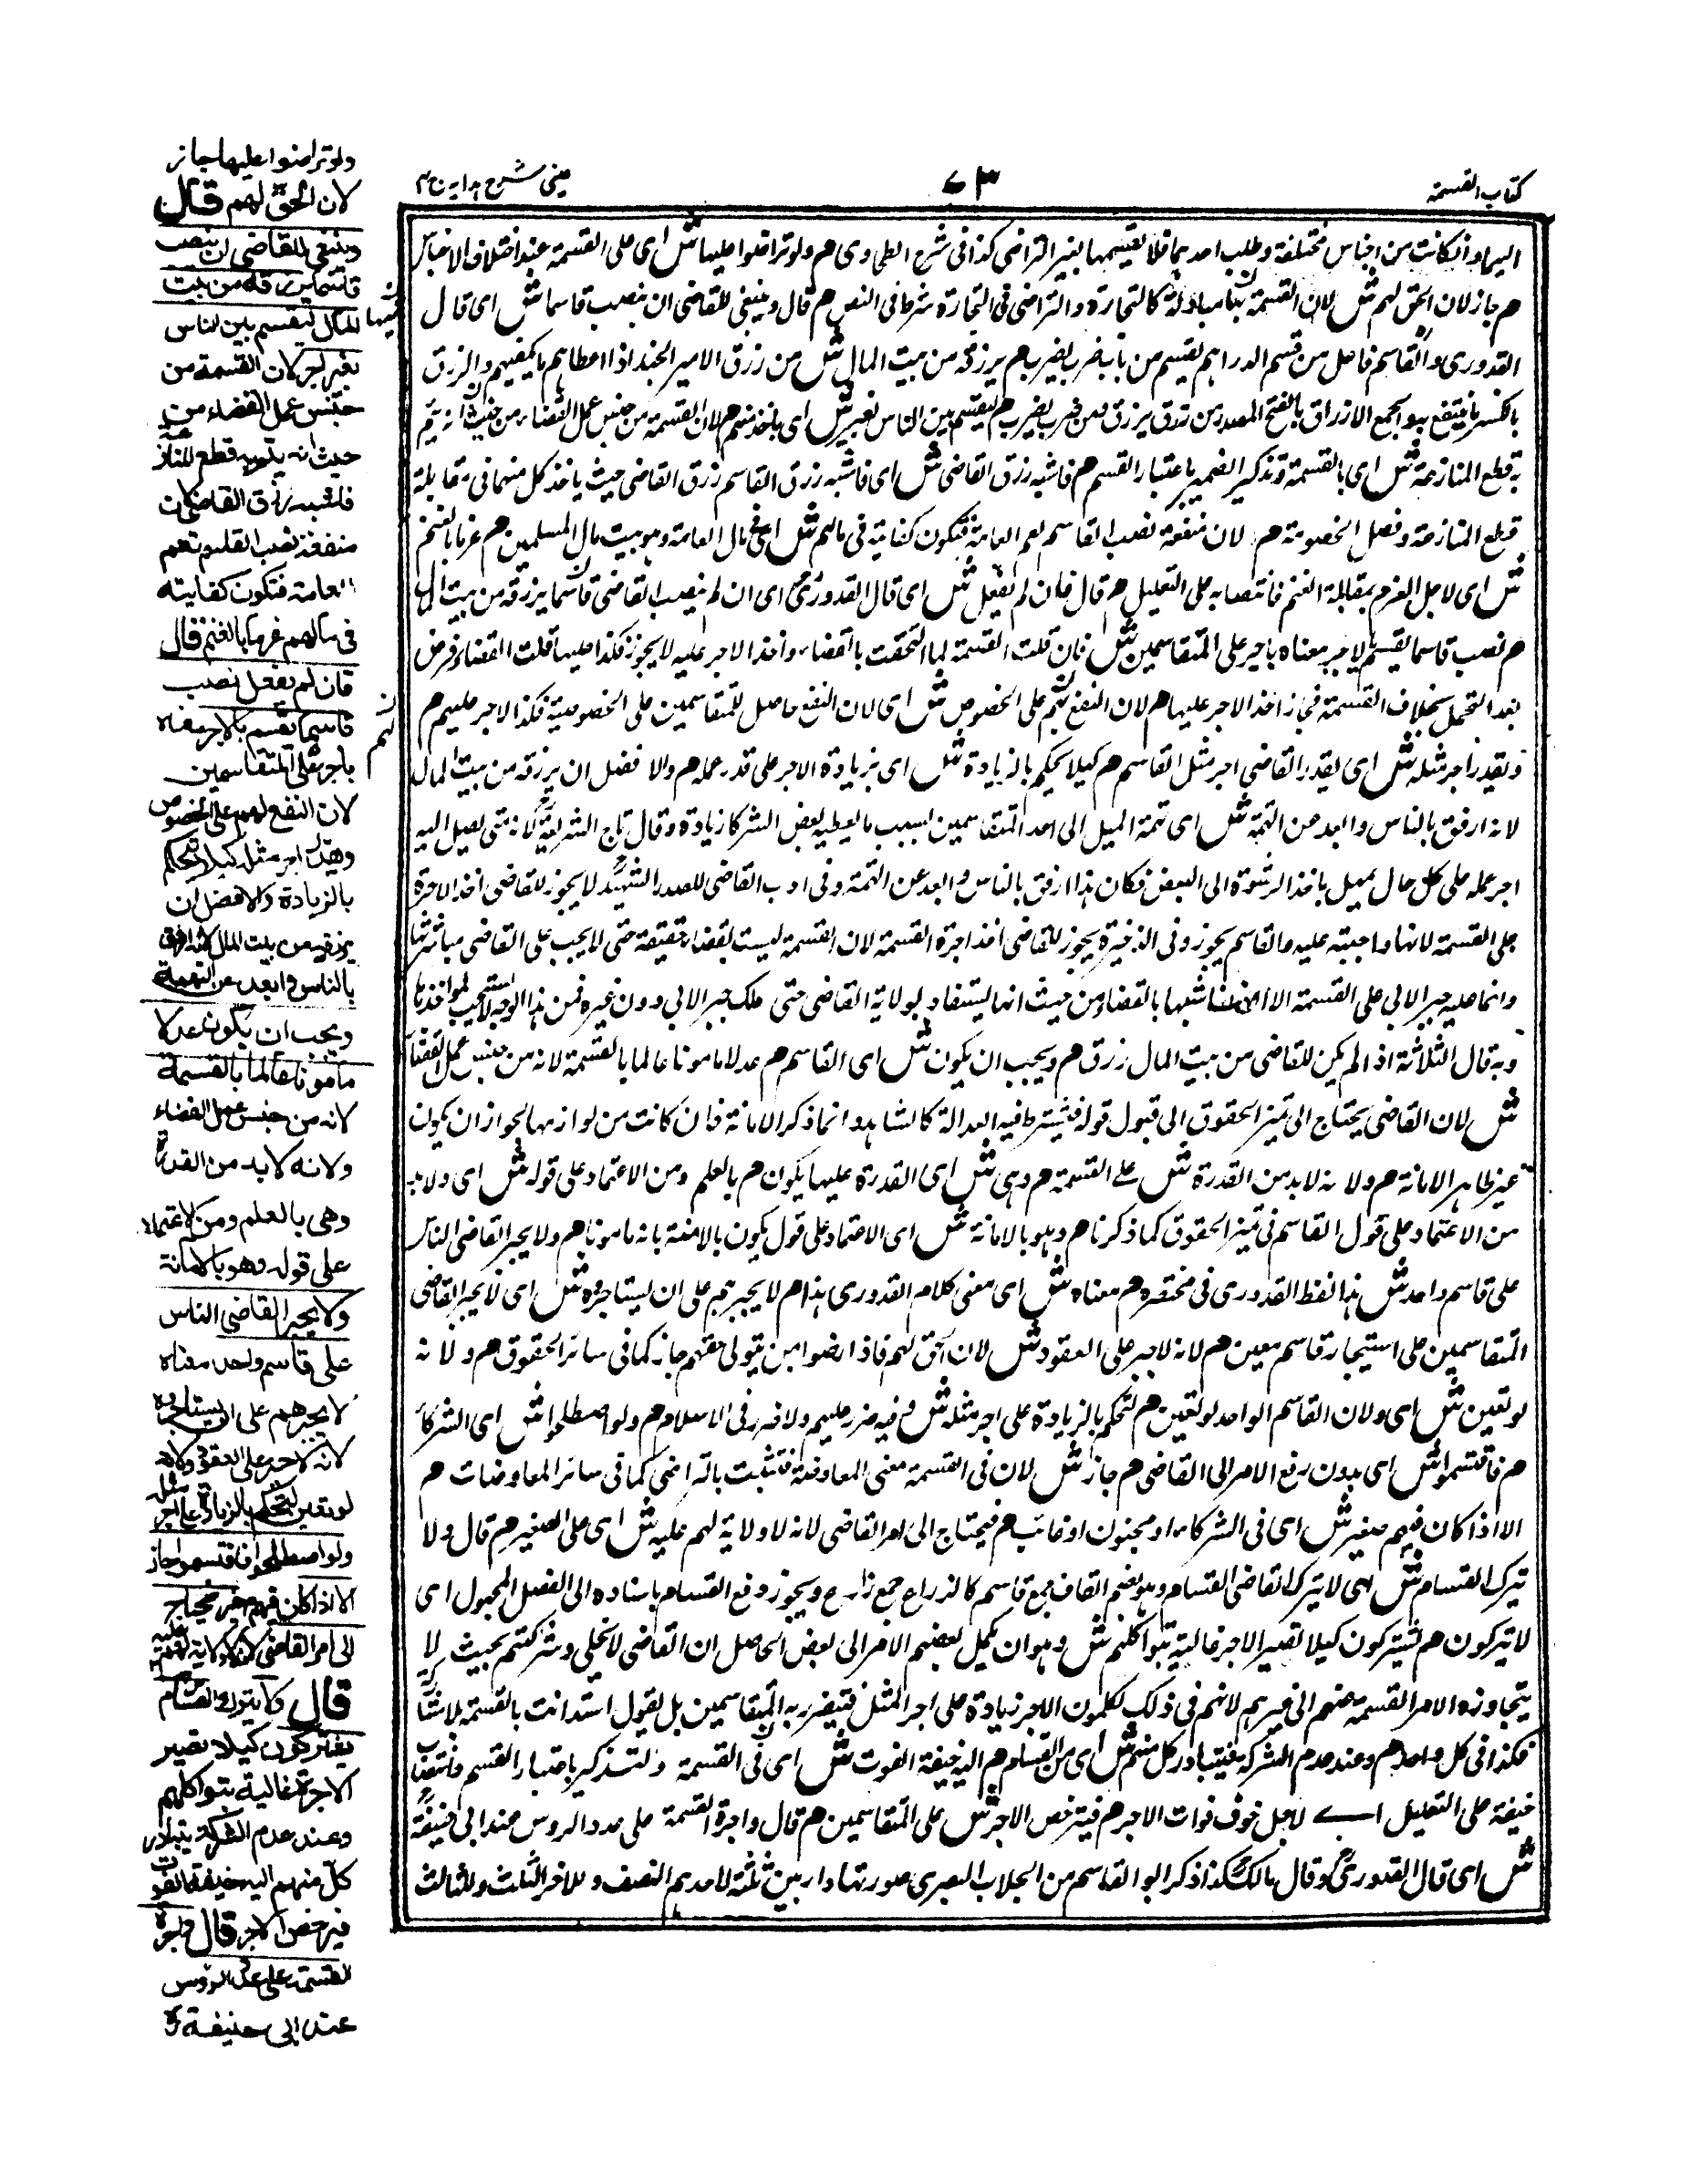 كتاب القسمة
٧٣
عينى شرح هدايه ج ٣
اليها واذا كانت من اجناس مختلفة وطلب احدهما فلا يقسمها بغير التراضى كذا فى شرح الطحاوى هم ولو تراضوا عليها ش اى على القسمة عند اختلاف الاجناس
هم جاز لان الحق لهم ش لان القسمة هنا مبادلة كالتجارة والتراضى فى التجارة شرط فى النص هم قال وينبغى للقاضى ان ينصب قاسما ش اى قال
القدورى والقاسم فاعل من قسم الدراهم يقسم من باب ضرب يضرب هم يرزقه من بيت المال ش من رزق الامير الجند اذا اعطاهم ما يكفيهم والرزق
بالكسر ما ينتفع به والجمع الارزاق بالفتح المصدر من رزق يرزق من ضرب يضرب هم ليقسم بين الناس بغير ش اى ياخذ منهم هم لان القسمة من جنس عمل القضاء من حيث انه يتم
به قطع المنازعة ش اى بالقسمة وتذكير الضمير باعتبار القسم هم فاشبه رزق القاضى ش اى فاشبه رزق القاسم رزق القاضى حيث ياخذ كل منهما فى مقابلة
قطع المنازعة وفصل الخصومة هم لان منفعة نصب القاسم تعم العامة فتكون كفايته فى مالهم ش اى فى مال العامة وهو بيت مال المسلمين هم غرما بالغنم
ش اى لاجل الغرم بمقابلة الغنم فانتصابه على التعليل هم قال فان لم يفعل ش اى قال القدورى اى ان لم ينصب القاضى قاسما يرزقه من بيت المال
هم نصب قاسما يقسم بالاجر معناه باجر على المتقاسمين ش فان قلت القسمة لما التحقت بالقضاء واخذ الاجر عليه لا يجوز فكذا عليها قلت القضاء فرض
بعد التحمل بخلاف القسمة فجاز اخذ الاجر عليها هم لان النفع لهم على الخصوص ش اى لان النفع حاصل للمتقاسمين على الخصوصية فكذا الاجر عليهم هم
ويقدر اجر مثله ش اى يقدر القاضى اجر مثل القاسم هم كيلا يتحكم بالزيادة ش اى بزيادة الاجر على قدر عمله هم والافضل ان يرزقه من بيت المال
لانه ارفق بالناس وابعد عن التهمة ش اى تهمة الميل الى احد المتقاسمين بسبب ما يعطيه بعض الشركاء زيادة وقال تاج الشريعة لانه متى يصل اليه
اجر عمله على كل حال لا يميل باخذ الرشوة الى البعض فكان هذا ارفق بالناس وابعد عن التهمة وفى ادب القاضى للصدر الشهيد لا يجوز للقاضى اخذ الاجرة
على القسمة لانها واجبته عليه والقاسم يجوز وفى الذخيرة يجوز للقاضى اخذ اجرة القسمة لان القسمة ليست بقضاء حقيقة حتى لا يجب على القاضى مباشرتها
وانما عليه جبر الآبى على القسمة الا ان لها شبها بالقضاء من حيث انها تستفاد بولاية القاضى حتى ملك جبر الآبى دون غيره فمن هذا الوجه لا يستحب اخذها
وبه قال الثلاثة اذا لم يكن للقاضى من بيت المال رزق هم ويجب ان يكون ش اى القاسم هم عدلا مامونا عالما بالقسمة لانه من جنس عمل القضاء
ش لان القاضى يحتاج الى تميز الحقوق الى قبول قوله فيشترط فيه العدالة كالشاهد وانما ذكر الامانة فان كانت من لوازمها لجواز ان يكون
غير ظاهر الامانة هم ولانه لا بد من القدرة ش على القسمة هم وهى ش اى القدرة عليها يكون هم بالعلم ومن الاعتماد على قوله ش اى ولا بد
من الاعتماد على قول القاسم فى تميز الحقوق كما ذكرنا هم وهو بالامانة ش اى الاعتماد على قول يكون بالامنة بانه مامونا هم ولا يجبر القاضى الناس
على قاسم واحد ش هذا لفظ القدورى فى مختصره هم معناه ش اى معنى كلام القدورى هذا هم لا يجبرهم على ان يستاجروه ش اى لا يجبر القاضى
المتقاسمين على استيجار قاسم معين هم لانه لا جبر على العقود ش لان الحق لهم فاذا رضوا بمن يتولى حقهم جاز كما فى سائر الحقوق هم ولانه
لو تعين ش اى ولان القاسم الواحد لو تعين هم لتحكم بالزيادة على اجر مثله ش وفيه ضرر عليهم ولا ضرر فى الاسلام هم ولو اصطلحوا ش اى الشركاء
هم فاقتسموا ش اى بدون رفع الامر الى القاضى هم جاز ش لان فى القسمة معنى المعاوضة فتثبت بالتراضى كما فى سائر المعاوضات هم
الا اذا كان فيهم صغير ش اى فى الشركاء او مجنون او غائب هم فيحتاج الى امر القاضى لانه لا ولاية لهم عليه ش اى على الصغير هم قال ولا
يترك القسام ش اى لا يترك القاضى القسام وهو بضم القاف جمع قاسم كالزراع جمع زارع ويجوز رفع القسام باسناده الى الفعل المجهول اى
لا يتركون هم يشتركون كيلا تصير الاجرة غالية بتواكلهم ش وهو ان يكمل بعضهم الامر الى بعض الحاصل ان القاضى لا يخلى وشركتهم بحيث لا
يتجاوزه الامر القسمة عنهم الى غيرهم لانهم فى ذلك يحكمون الاجر زيادة على اجر المثل فيتضرر به المتقاسمين بل يقول استد انت بالقسمة لا شئ
فكذا فى كل واحدهم وعند عدم الشركة فيتبادر كل منهم ش اى من القسام هم اليه خيفة الفوت ش اى فى القسمة والتذكير باعتبار القسم وانتصاب
خيفة على التعليل اى لاجل خوف فوات الاجر هم فيترخص الاجر ش على المتقاسمين هم قال واجرة القسمة على عدد الروس عند ابى حنيفة
ش اى قال القدورى وقال مالك كذا ذكر ابو القاسم من الجلاب البصرى صورتها دار بين ثلثة لاحدهم النصف وللاخر الثلث وللثالث
ولو تراضوا عليها جاز
لان الحق لهم قال
وينبغى للقاضى ان ينصب
قاسما يرزقه من بيت
المال ليقسم بين الناس
بغير اجر لان القسمة من
جنس عمل القضاء من
حيث انه يتم به قطع المنازعة
فاشبه رزق القاضى لان
منفعة نصب القاسم تعم
العامة فتكون كفايته
فى مالهم غرما بالغنم قال
فان لم يفعل نصب
قاسما يقسم بالاجر معناه
باجر على المتقاسمين
لان النفع لهم على الخصوص
ويقدر اجر مثله كيلا يتحكم
بالزيادة والافضل ان
يرزقه من بيت المال لانه ارفق
بالناس وابعد عن التهمة
ويجب ان يكون عدلا
مامونا عالما بالقسمة
لانه من جنس عمل القضاء
ولانه لا بد من القدرة
وهى بالعلم ومن الاعتماد
على قوله وهو بالامانة
ولا يجبر القاضى الناس
على قاسم واحد معناه
لا يجبرهم على ان يستاجروه
لانه لا جبر على العقود ولانه
لو تعين لتحكم بالزيادة على اجر مثله
ولو اصطلحوا فاقتسموا جاز
الا اذا كان فيهم صغير فيحتاج
الى امر القاضى لانه لا ولاية لهم عليه
قال ولا يترك القسام
يشتركون كيلا تصير
الاجرة غالية بتواكلهم
وعند عدم الشركة يتبادر
كل منهم اليه خيفة الفوت
فيرخص الاجر قال واجرة
القسمة على عدد الرؤس
عند ابى حنيفة رح